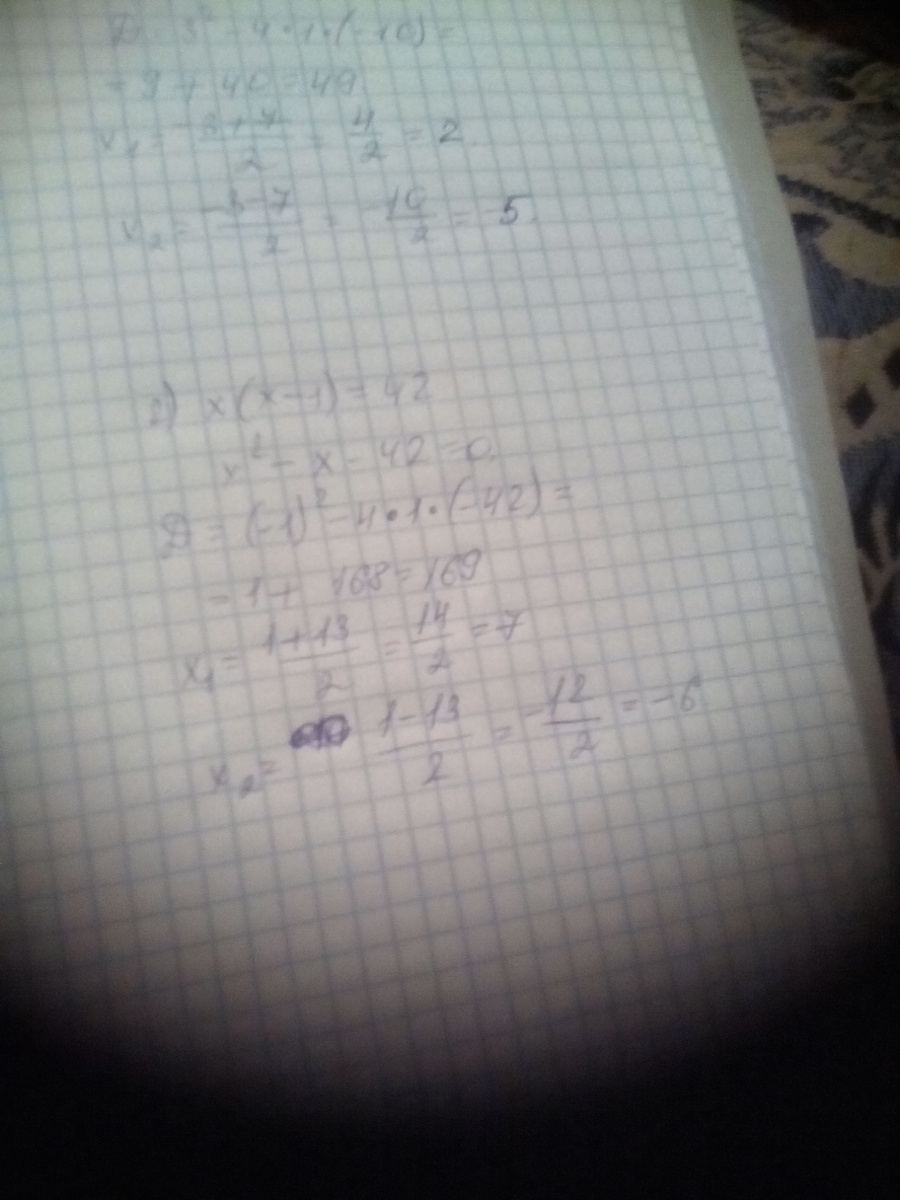 D = 3² - 4 • 1 • (-10) =
= 9 + 40 = 49
x₁ = (-3+7)/2 = 4/2 = 2
x₂ = (-3-7)/2 = -10/2 = -5.
2) x(x-1) = 42
x² - x - 42 = 0.
D = (-1)² - 4 • 1 • (-42) =
= 1 + 168 = 169
x₁ = (1+13)/2 = 14/2 = 7
x₂ = (1-13)/2 = -12/2 = -6